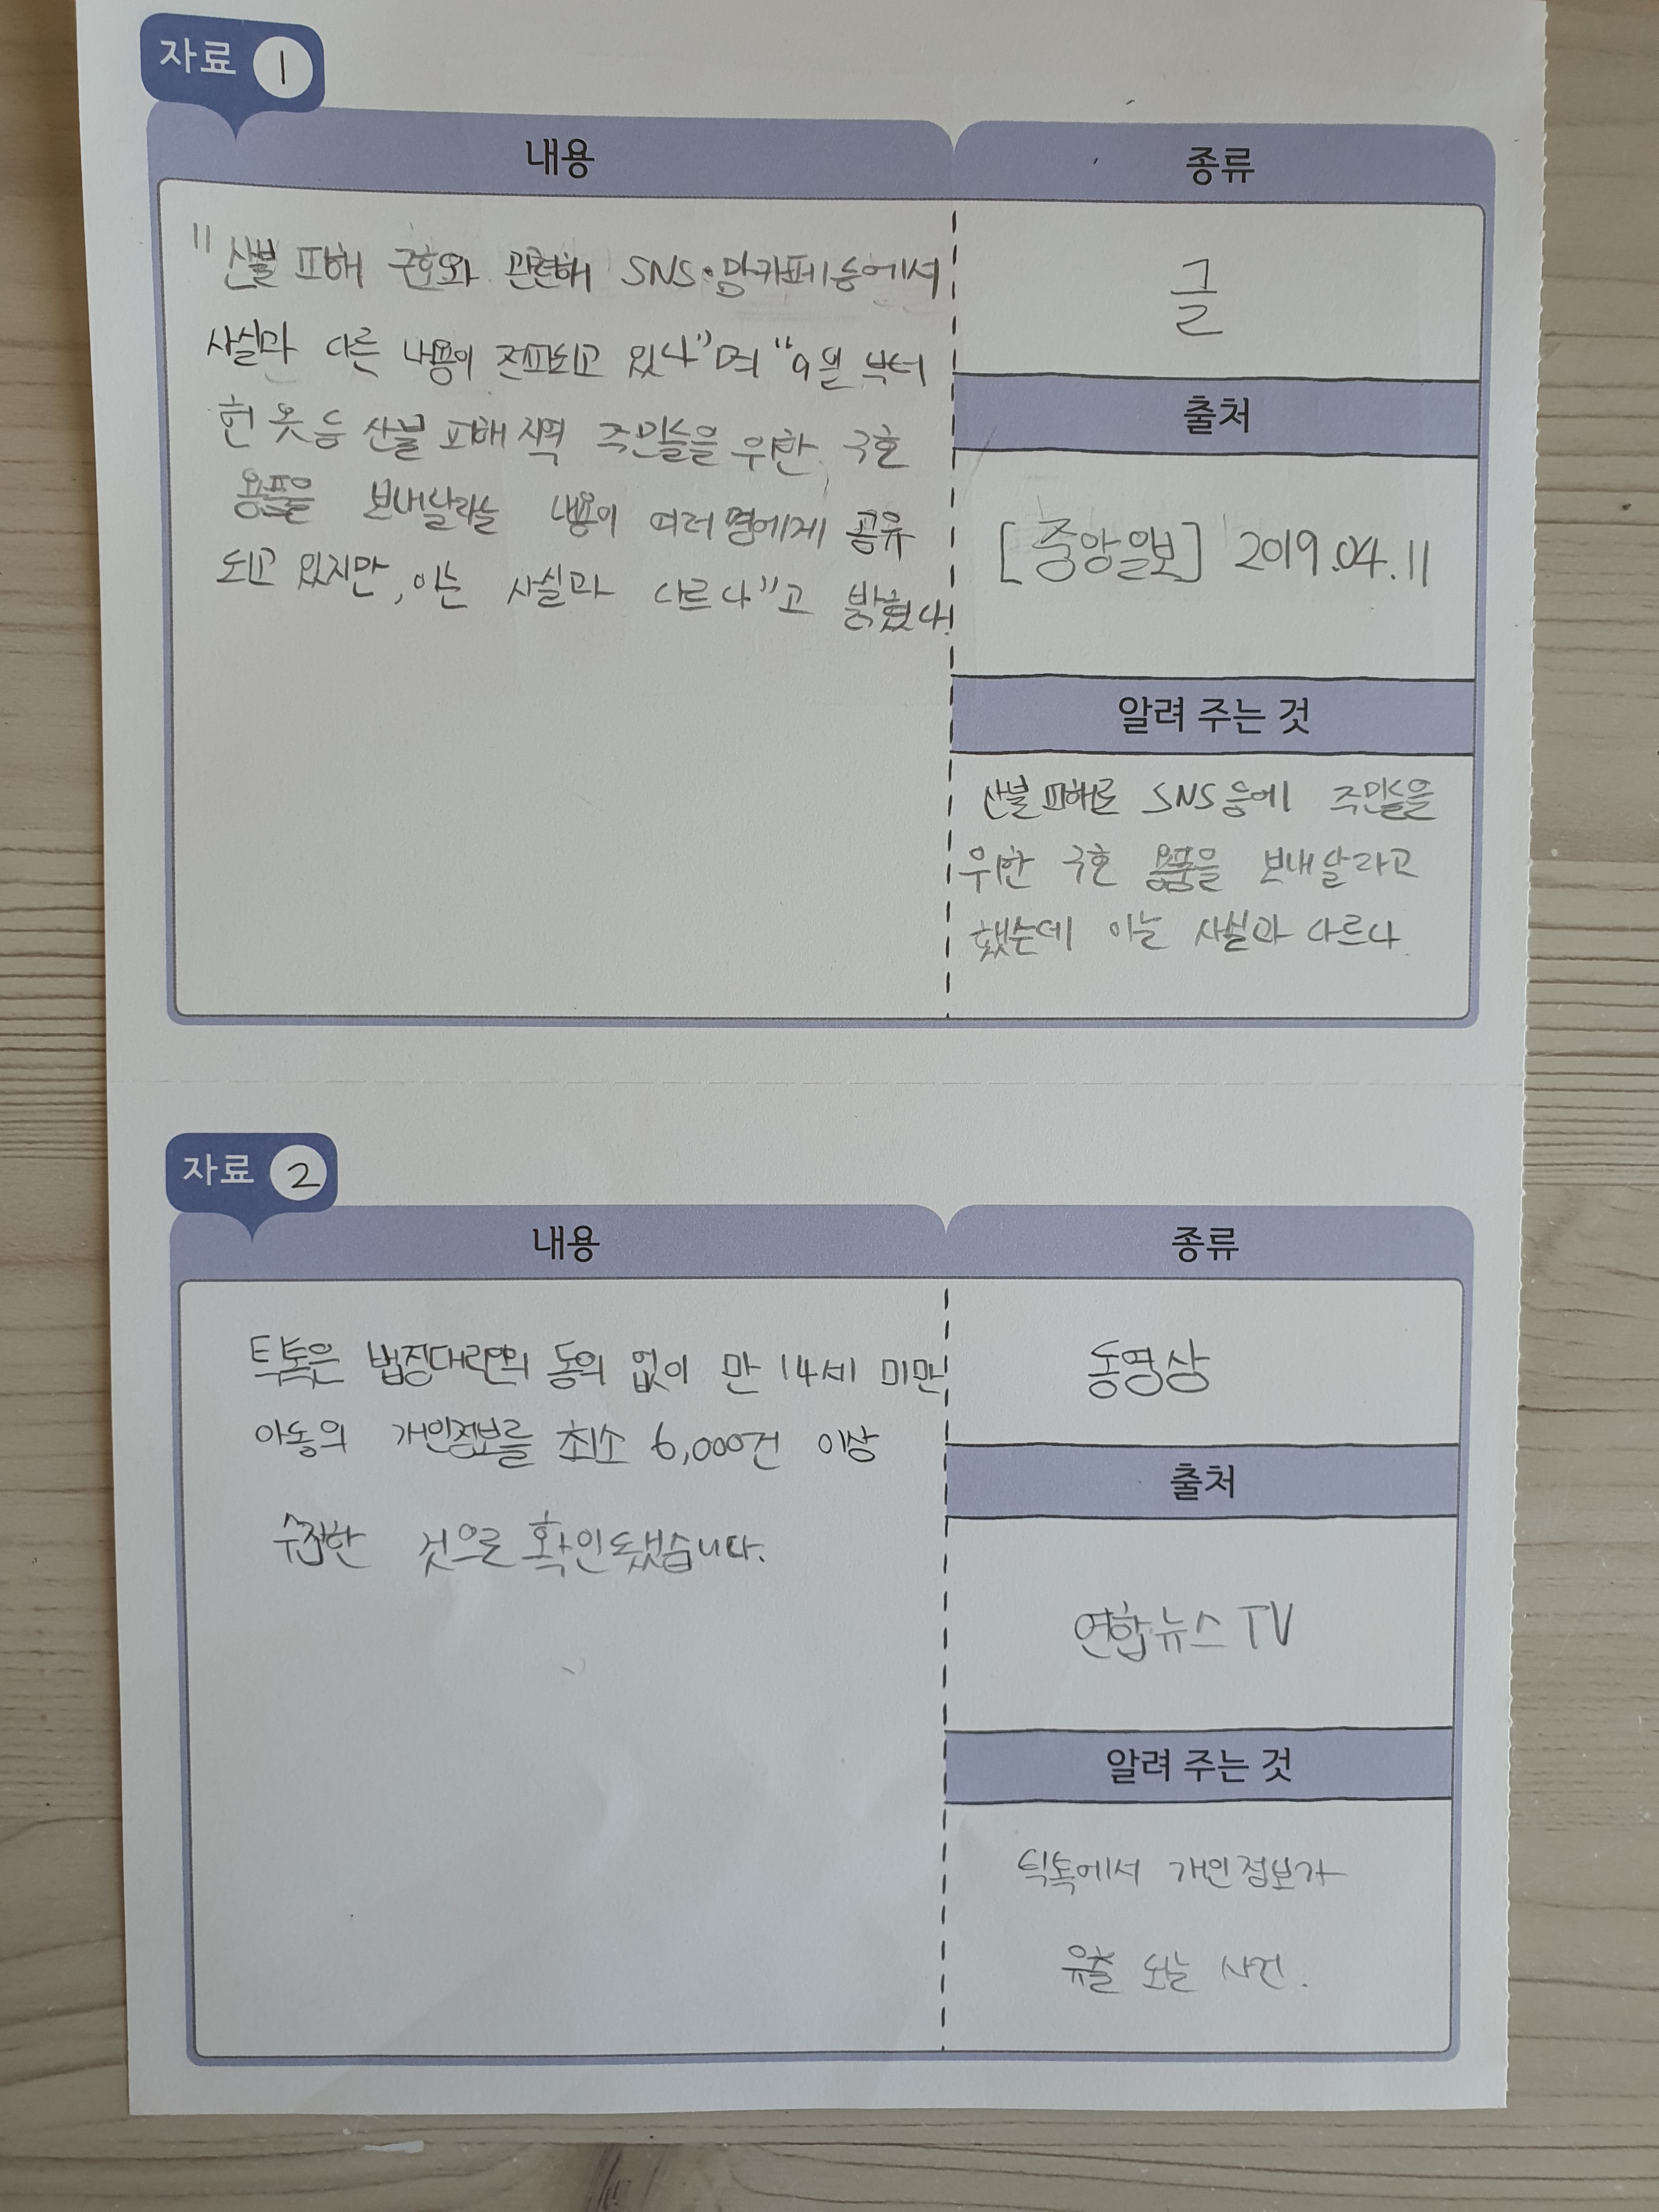 자료 1
내용
종류
"산불 피해 구호와 관련해 SNS·맘카페 등에서
사실과 다른 내용이 전파되고 있다"며 "9일 부터
헌 옷 등 산불 피해 지역 주민들을 위한 구호
용품을 보내달라는 내용이 여러 명에게 공유
되고 있지만, 이는 사실과 다르다"고 밝혔다.
글
출처
[중앙일보] 2019.04.11
알려 주는 것
산불 피해로 SNS 등에 주민들을
위한 구호 용품을 보내 달라고
했는데 이는 사실과 다르다
자료 2
내용
종류
틱톡은 법정대리인의 동의 없이 만 14세 미만
아동의 개인정보를 최소 6,000건 이상
수집한 것으로 확인됐습니다.
동영상
출처
연합뉴스 TV
알려 주는 것
틱톡에서 개인정보가
유출 되는 사건.